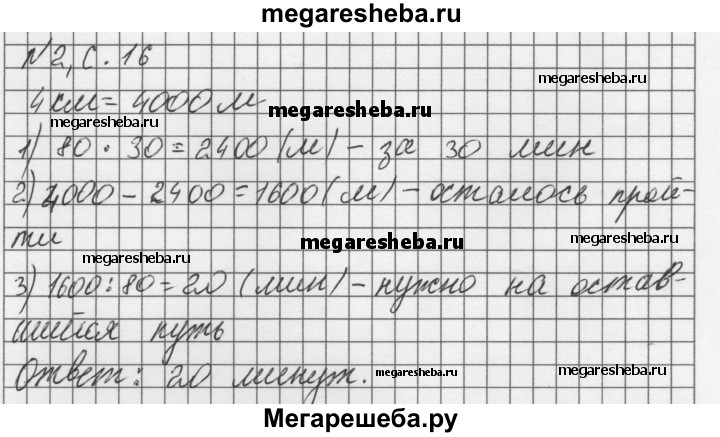 megaresheba.ru
№2, с. 16
megaresheba.ru
4 км = 4000 м
megaresheba.ru
megaresheba.ru
1) 80 · 30 = 2400 (м) - за 30 мин
2) 4000 - 2400 = 1600 (м) - осталось прой-
ти
megaresheba.ru
megaresheba.ru
megaresheba.ru
3) 1600 : 80 = 20 (мин) - нужно на остав-
шийся путь
Ответ: 20 минут.
megaresheba.ru
megaresheba.ru
Мегарешеба.ру